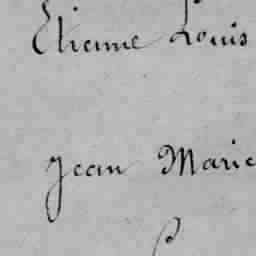 Etienne Louis
Jean Marie